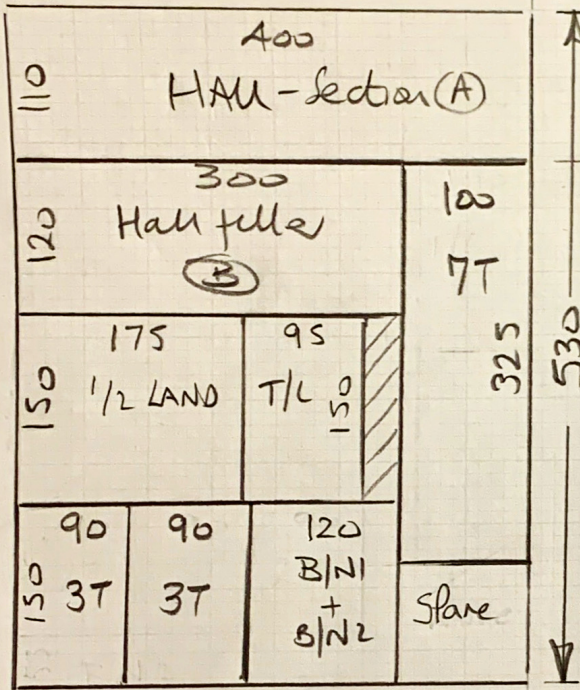 400
110
HALL-Section (A)
300
120
Hall filler
(B)
100
7T
325
530
175
150
1/2 LAND
95
T/L
150
90
150
3T
90
3T
120
B/N1
+
B/N2
Spare